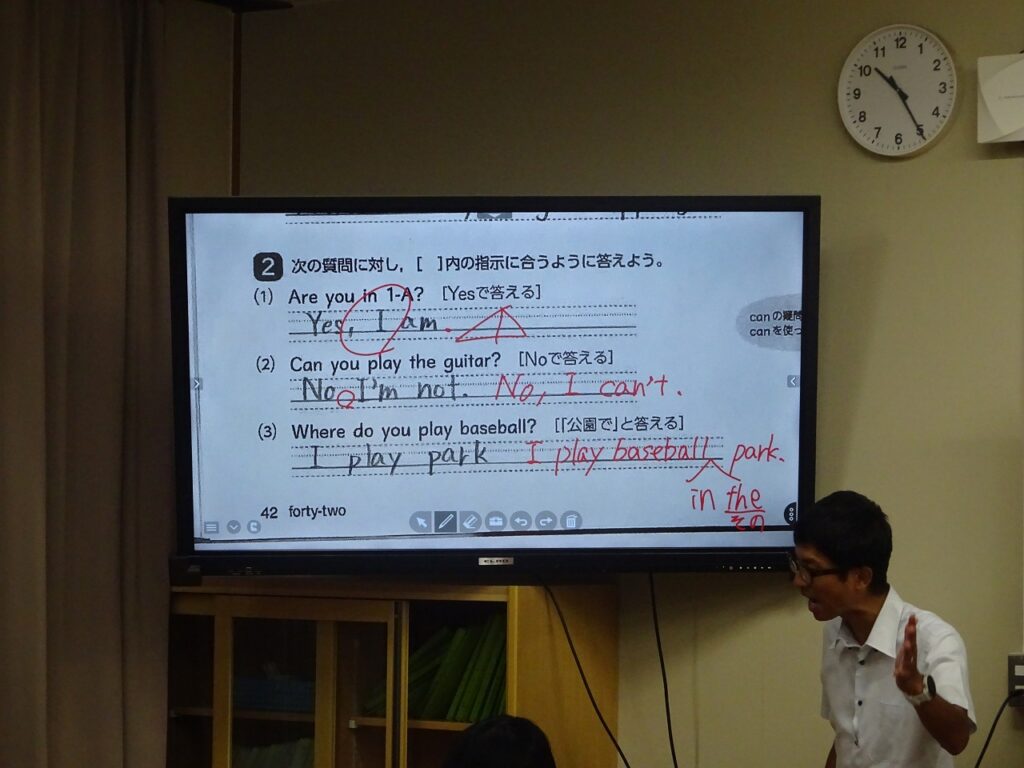 2 次の質問に対し，[　]内の指示に合うように答えよう。
(1) Are you in 1-A? [Yesで答える]
Yes, I am.
(2) Can you play the guitar? [Noで答える]
No I'm not. No, I can't.
(3) Where do you play baseball? [「公園で」と答える]
I play park I play baseball park.
in the
その
42 forty-two
canの疑問
canを使っ
ELMO
12
1
2
3
4
5
6
7
8
9
10
11